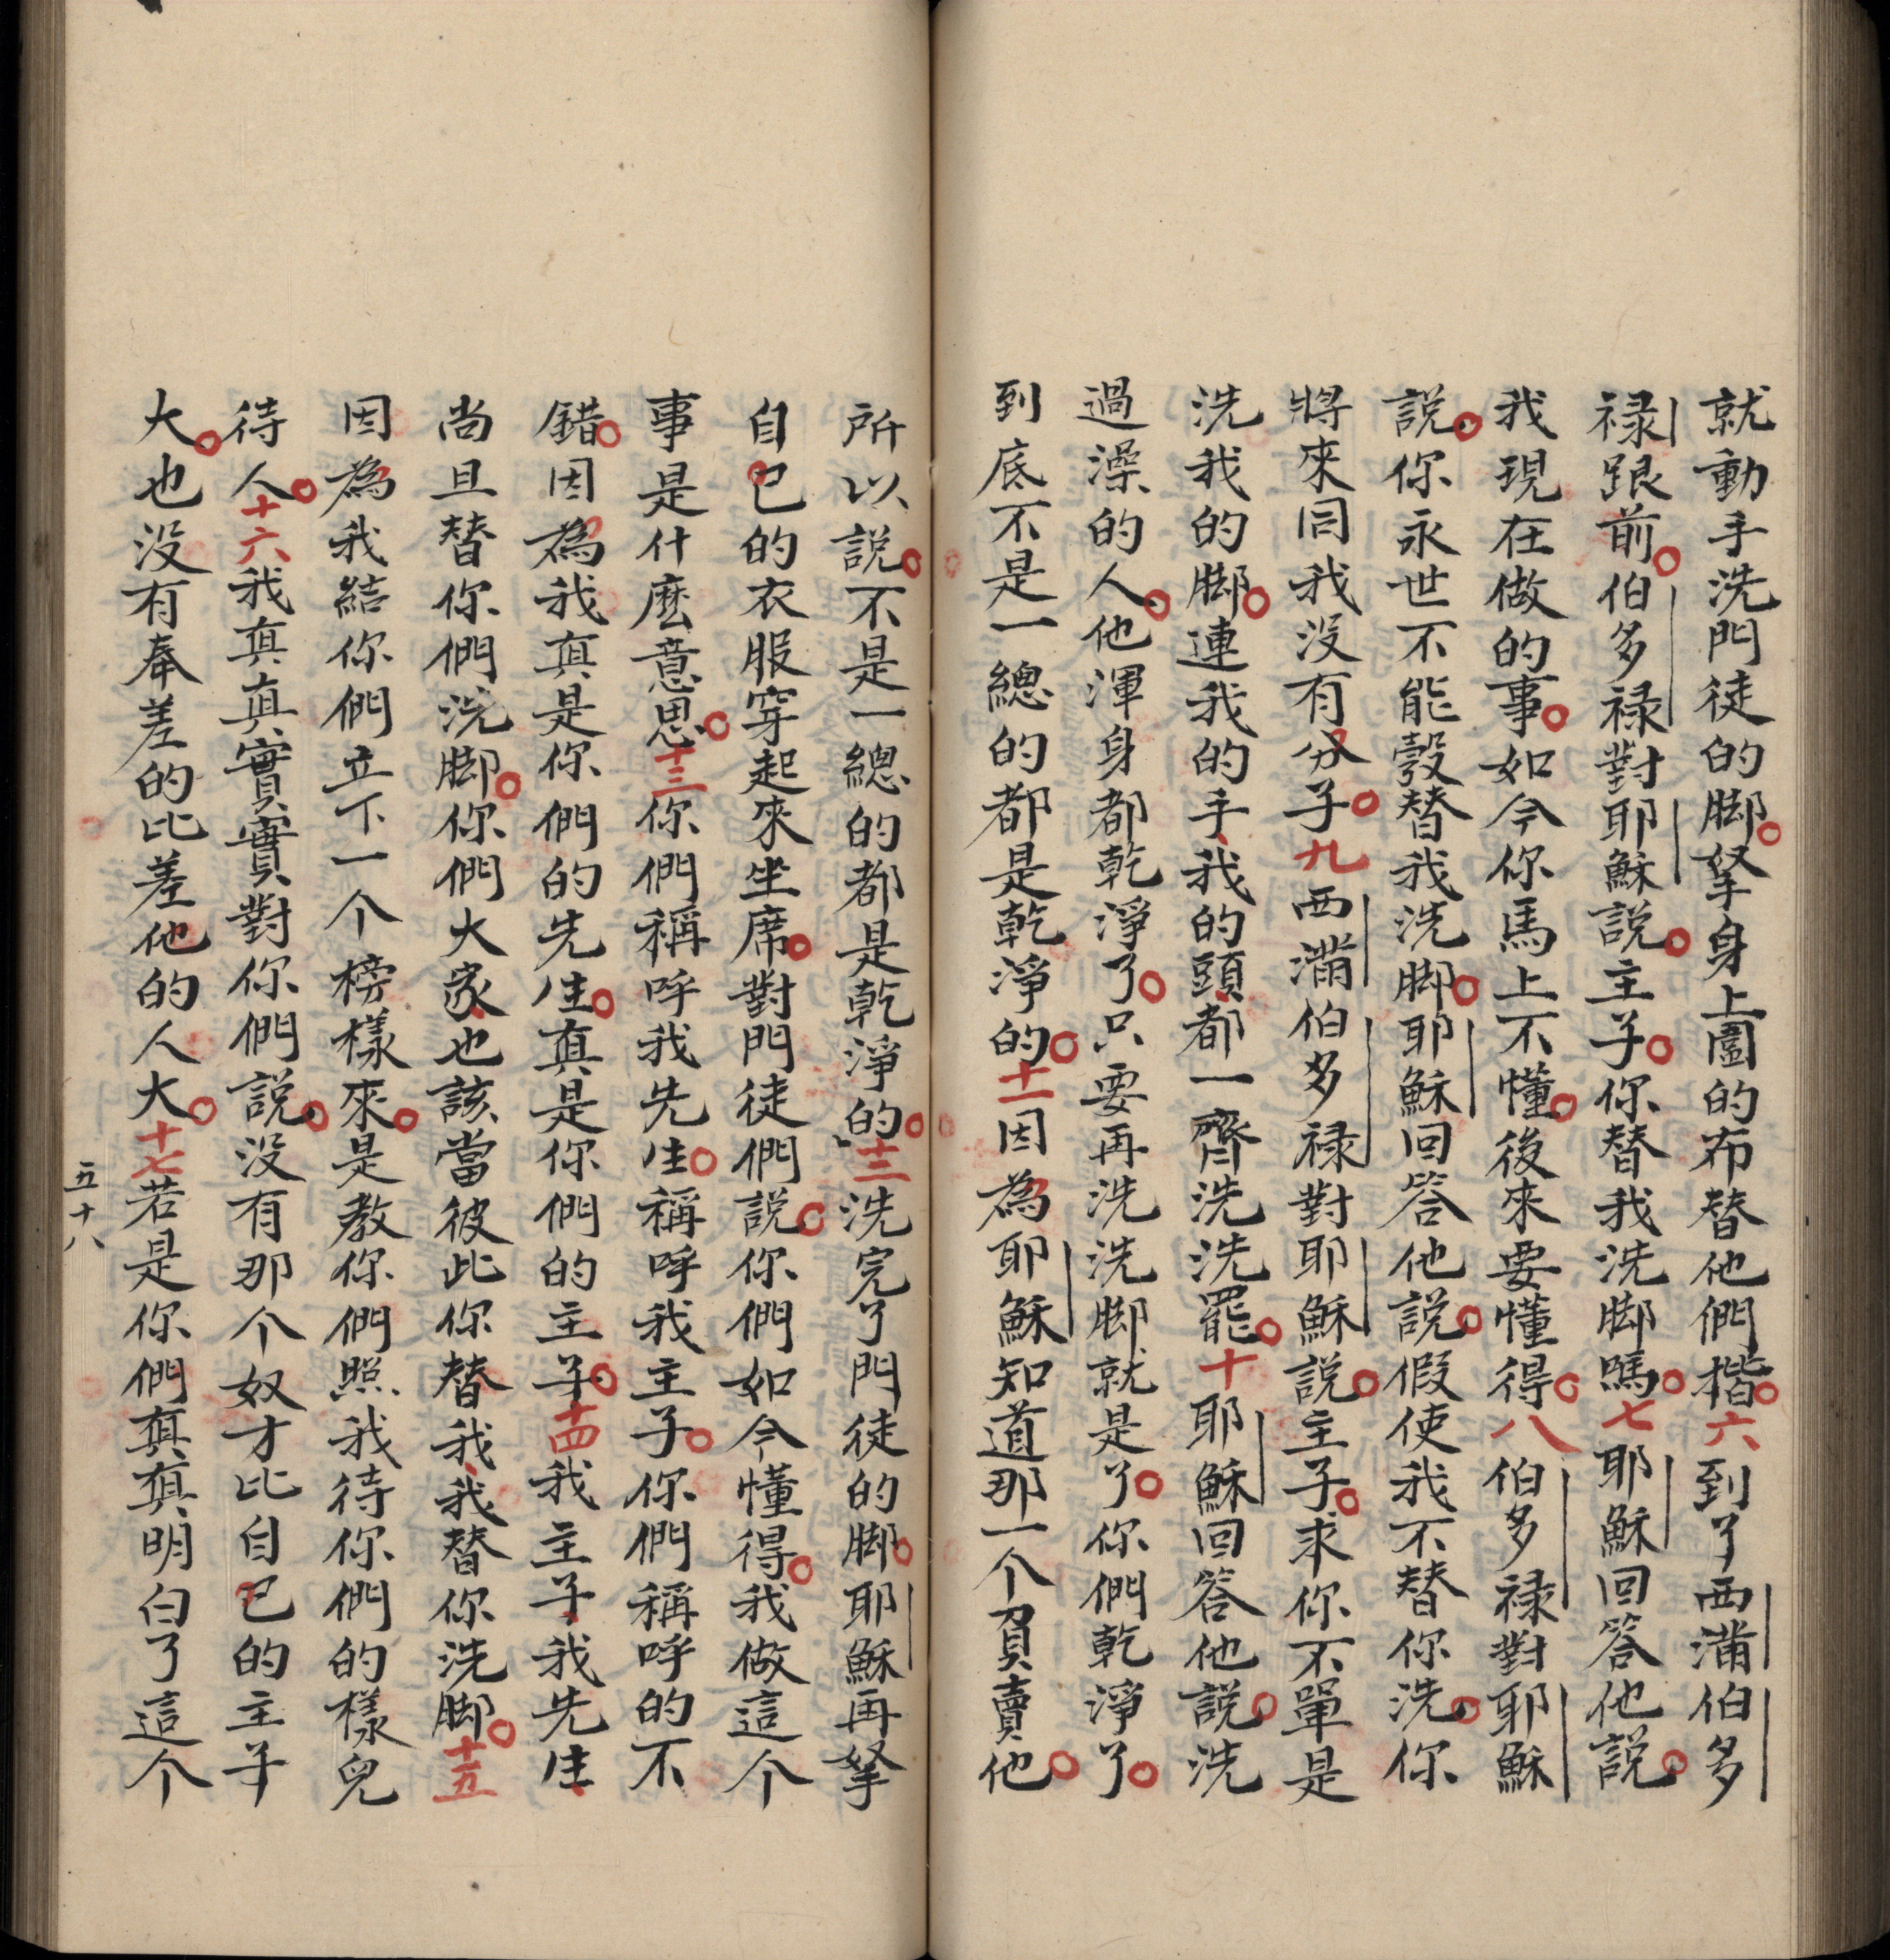 就動手洗門徒的脚。拏身上圍的布替他們揩。六到了西满伯多
禄跟前。伯多禄對耶穌說。主子。你替我洗脚嗎。七耶穌回答他說。
我現在做的事。如今你馬上不懂。後來要懂得。八伯多禄對耶穌
說。你永世不能彀替我洗脚。耶穌回答他說。假使我不替你洗。你
將來同我没有分子。九西满伯多禄對耶穌說。主子。求你不單是
洗我的脚。連我的手、我的頭、都一齊洗洗罷。十耶穌回答他說。洗
過澡的人。他渾身都乾淨了。只要再洗洗脚就是了。你們乾淨了。
到底不是一總的都是乾淨的。十一因為耶穌知道那一个負賣他。
所以說。不是一總的都是乾淨的。十二洗完了門徒的脚。耶穌再拏
自己的衣服穿起來坐席。對門徒們說。你們如今懂得。我做這个
事是什麽意思。十三你們稱呼我先生。稱呼我主子。你們稱呼的不
錯。因為我真是你們的先生。真是你們的主子。十四我主子、我先生、
尚且替你們洗脚。你們大家、也該當彼此你替我、我替你洗脚。十五
因為我結你們立下一个榜樣來。是教你們照我待你們的樣兒
待人。十六我真真實實對你們說。没有那个奴才比自己的主子
大。也没有奉差的比差他的人大。十七若是你們真真明白了這个
五十八